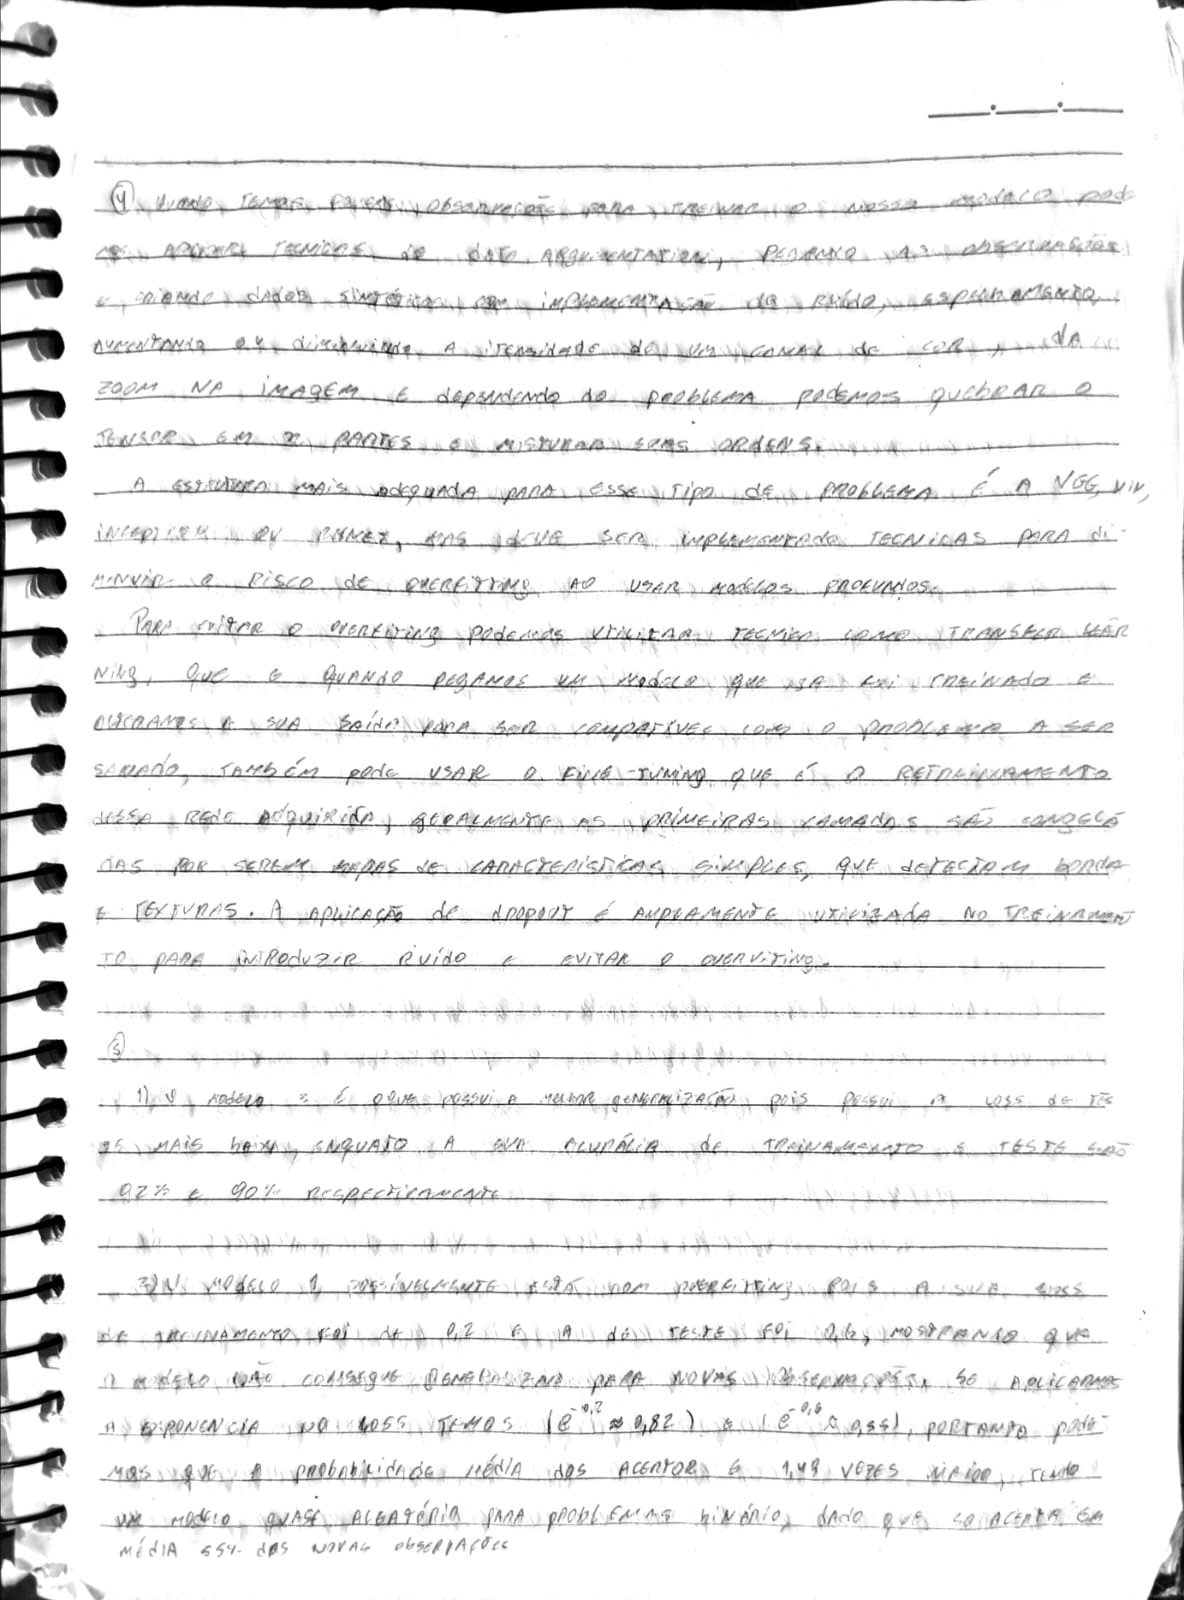 4) Quando temos poucas observações para treinar o nosso modelo pode
mos aplicar tecnicas de data argumentation, pegando as observações
e criando dados sintéticos com implementação de ruído, espelhamento,
aumentando ou diminuindo a itensidade de um canal de cor, da
zoom na imagem e dependendo do problema podemos quebrar o
tensor em x partes e misturar suas ordens.
A estrutura mais adequada para esse tipo de problema é a VGG,
inception ou resnet, mas deve ser implementado tecnicas para di-
minuir o risco de overfitting ao usar modelos profundos.
Para evitar o overfiting podemos utilizar tecnica como transfer lear
ning, que e quando pegamos um modelo que ja foi treinado e
a sua saída para ser compatível com o problema a ser
também pode usar o fine-tuning que é o retreinamento
dessa rede adquirida, geralmente as primeiras camadas são congela
das por serem de caracteristicas simples, que detectam borda
e texturas. A aplicação de dropout é amplamente utilizada no treinamen
to para introduzir ruído e evitar o overviting.
5
1) O modelo é oque possui a melhor generalização, pois possui a loss de tes
te mais baixa, enquato a sua acurália de treinamento e teste são
92% e 90% respectivamente
O modelo 1 possívelmente está com overfitting pois a sua loss
de treinamento foi de 0,2 e a de teste foi 0,6, mostrando que
o modelo não consegue generalizar para novas observações, se aplicarmos
a exponencia no loss temos (e^-0,2 ≈ 0,82) e (e^-0,6 ≈ 0,55), portanto pode-
mos que a probabilidade média dos acertor e 1,49 vezes maior, tendo
um modelo quase aleatório para problemas binário, dado que so acerta em
média 55% das novas observações